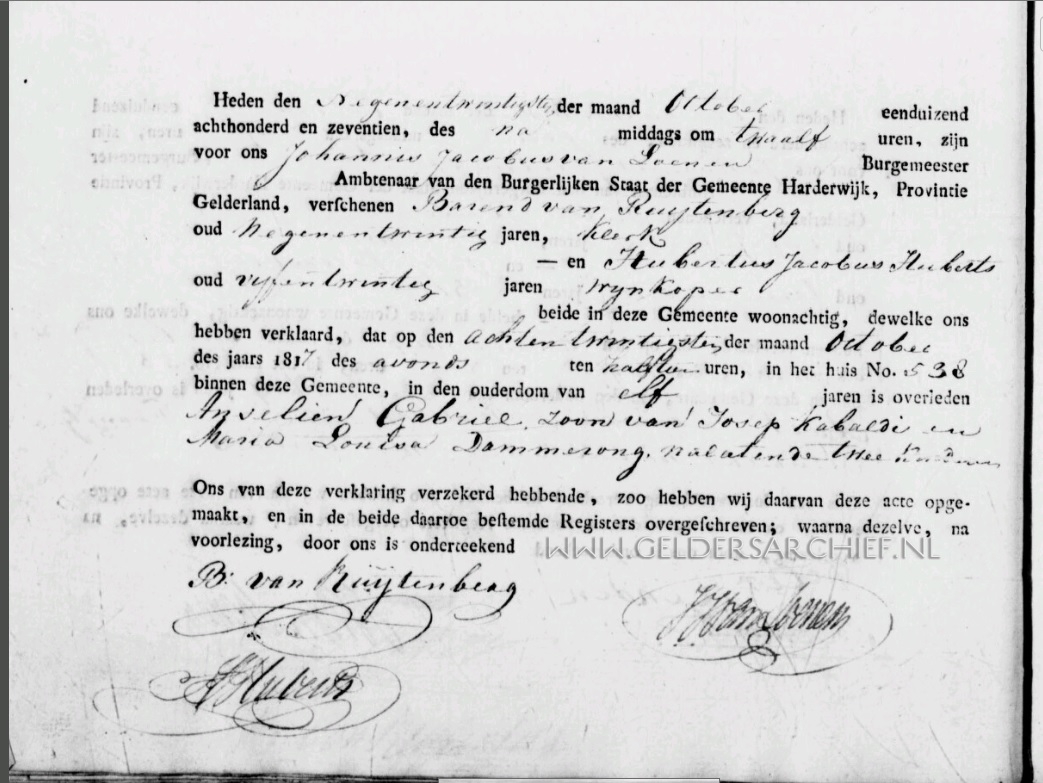 Heden den Negenentwintigste, der maand October eenduizend
achthonderd en zeventien, des na middags om twaalf uren, zijn
voor ons Johannis Jacobus van Loenen Burgemeester
Ambtenaar van den Burgerlijken Staat der Gemeente Harderwijk, Provincie
Gelderland, verschenen Barend van Ruijtenberg
oud Negenentwintig jaren, Klerk
— en Hubertus Jacobus Huberts
oud vyfentwintig jaren wynkoper
beide in deze Gemeente woonachtig, dewelke ons
hebben verklaard, dat op den achtentwintigste, der maand October
des jaars 1817 des avonds ten half uren, in het huis No. 538
binnen deze Gemeente, in den ouderdom van elf jaren is overleden
Gabriel, zoon van Josep Kabaldi en
Maria Louisa Dammerong, nalatende twee Kinderen
Ons van deze verklaring verzekerd hebbende, zoo hebben wij daarvan deze acte opge-
maakt, en in de beide daartoe bestemde Registers overgeschreven; waarna dezelve, na
voorlezing, door ons is onderteekend
WWW.GELDERSARCHIEF.NL
B. van Ruijtenberg
JJ van Loenen
Huberts